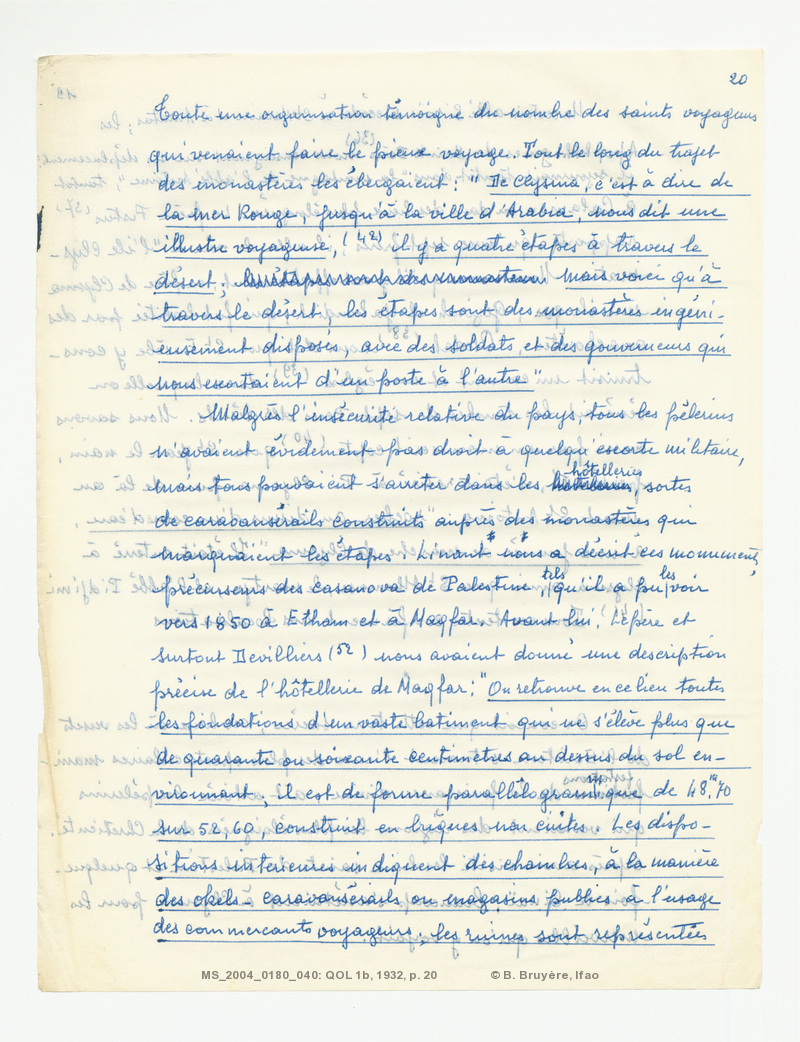 20
Toute une organisation témoigne du nombre des saints voyageurs
qui venaient faire le pieux voyage. Tout le long du trajet
des monastères les ébergaient : " De Clysma, c'est à dire de
la mer Rouge, jusqu'à la ville d'Arabia, nous dit une
illustre voyageuse, (42) il y a quatre étapes à travers le
désert ; les étapes sont des monastères Mais voici qu'à
travers le désert, les étapes sont des monastères ingéni-
eusement disposés, avec des soldats, et des gouverneurs qui
nous escortaient d'un poste à l'autre "
Malgrès l'insécurité relative du pays, tous les pélerins
n'avaient évidement pas droit à quelqu'escorte militaire,
hôtelleries
mais tous pouvaient s'arrêter dans les, sortes
de caravansérails construits auprès des monastères qui
marquaient les étapes. Linant nous a décrit ces monuments,
précurseurs des casanova de Palestine tels qu'il a pu les voir
vers 1850 à Etham et à Magfar. Avant lui, Lepère et
surtout Devilliers (52) nous avaient donné une description
précise de l'hôtellerie de Magfar ; "On retrouve en ce lieu toutes
les fondations d'un vaste batiment qui ne s'élève plus que
de quarante ou soixante centimètres au dessus du sol en-
vironnant ; il est de forme parallélogrammique de 48.m70
sur 52,60, construit en briques non cuites. Les dispo-
sitions interieures indiquent des chambres, à la manière
des okels - caravansérails ou magasins publics à l'usage
des commercants voyageurs ; les ruines sont représentées
MS_2004_0180_040: QOL 1b, 1932, p. 20 © B. Bruyère, Ifao